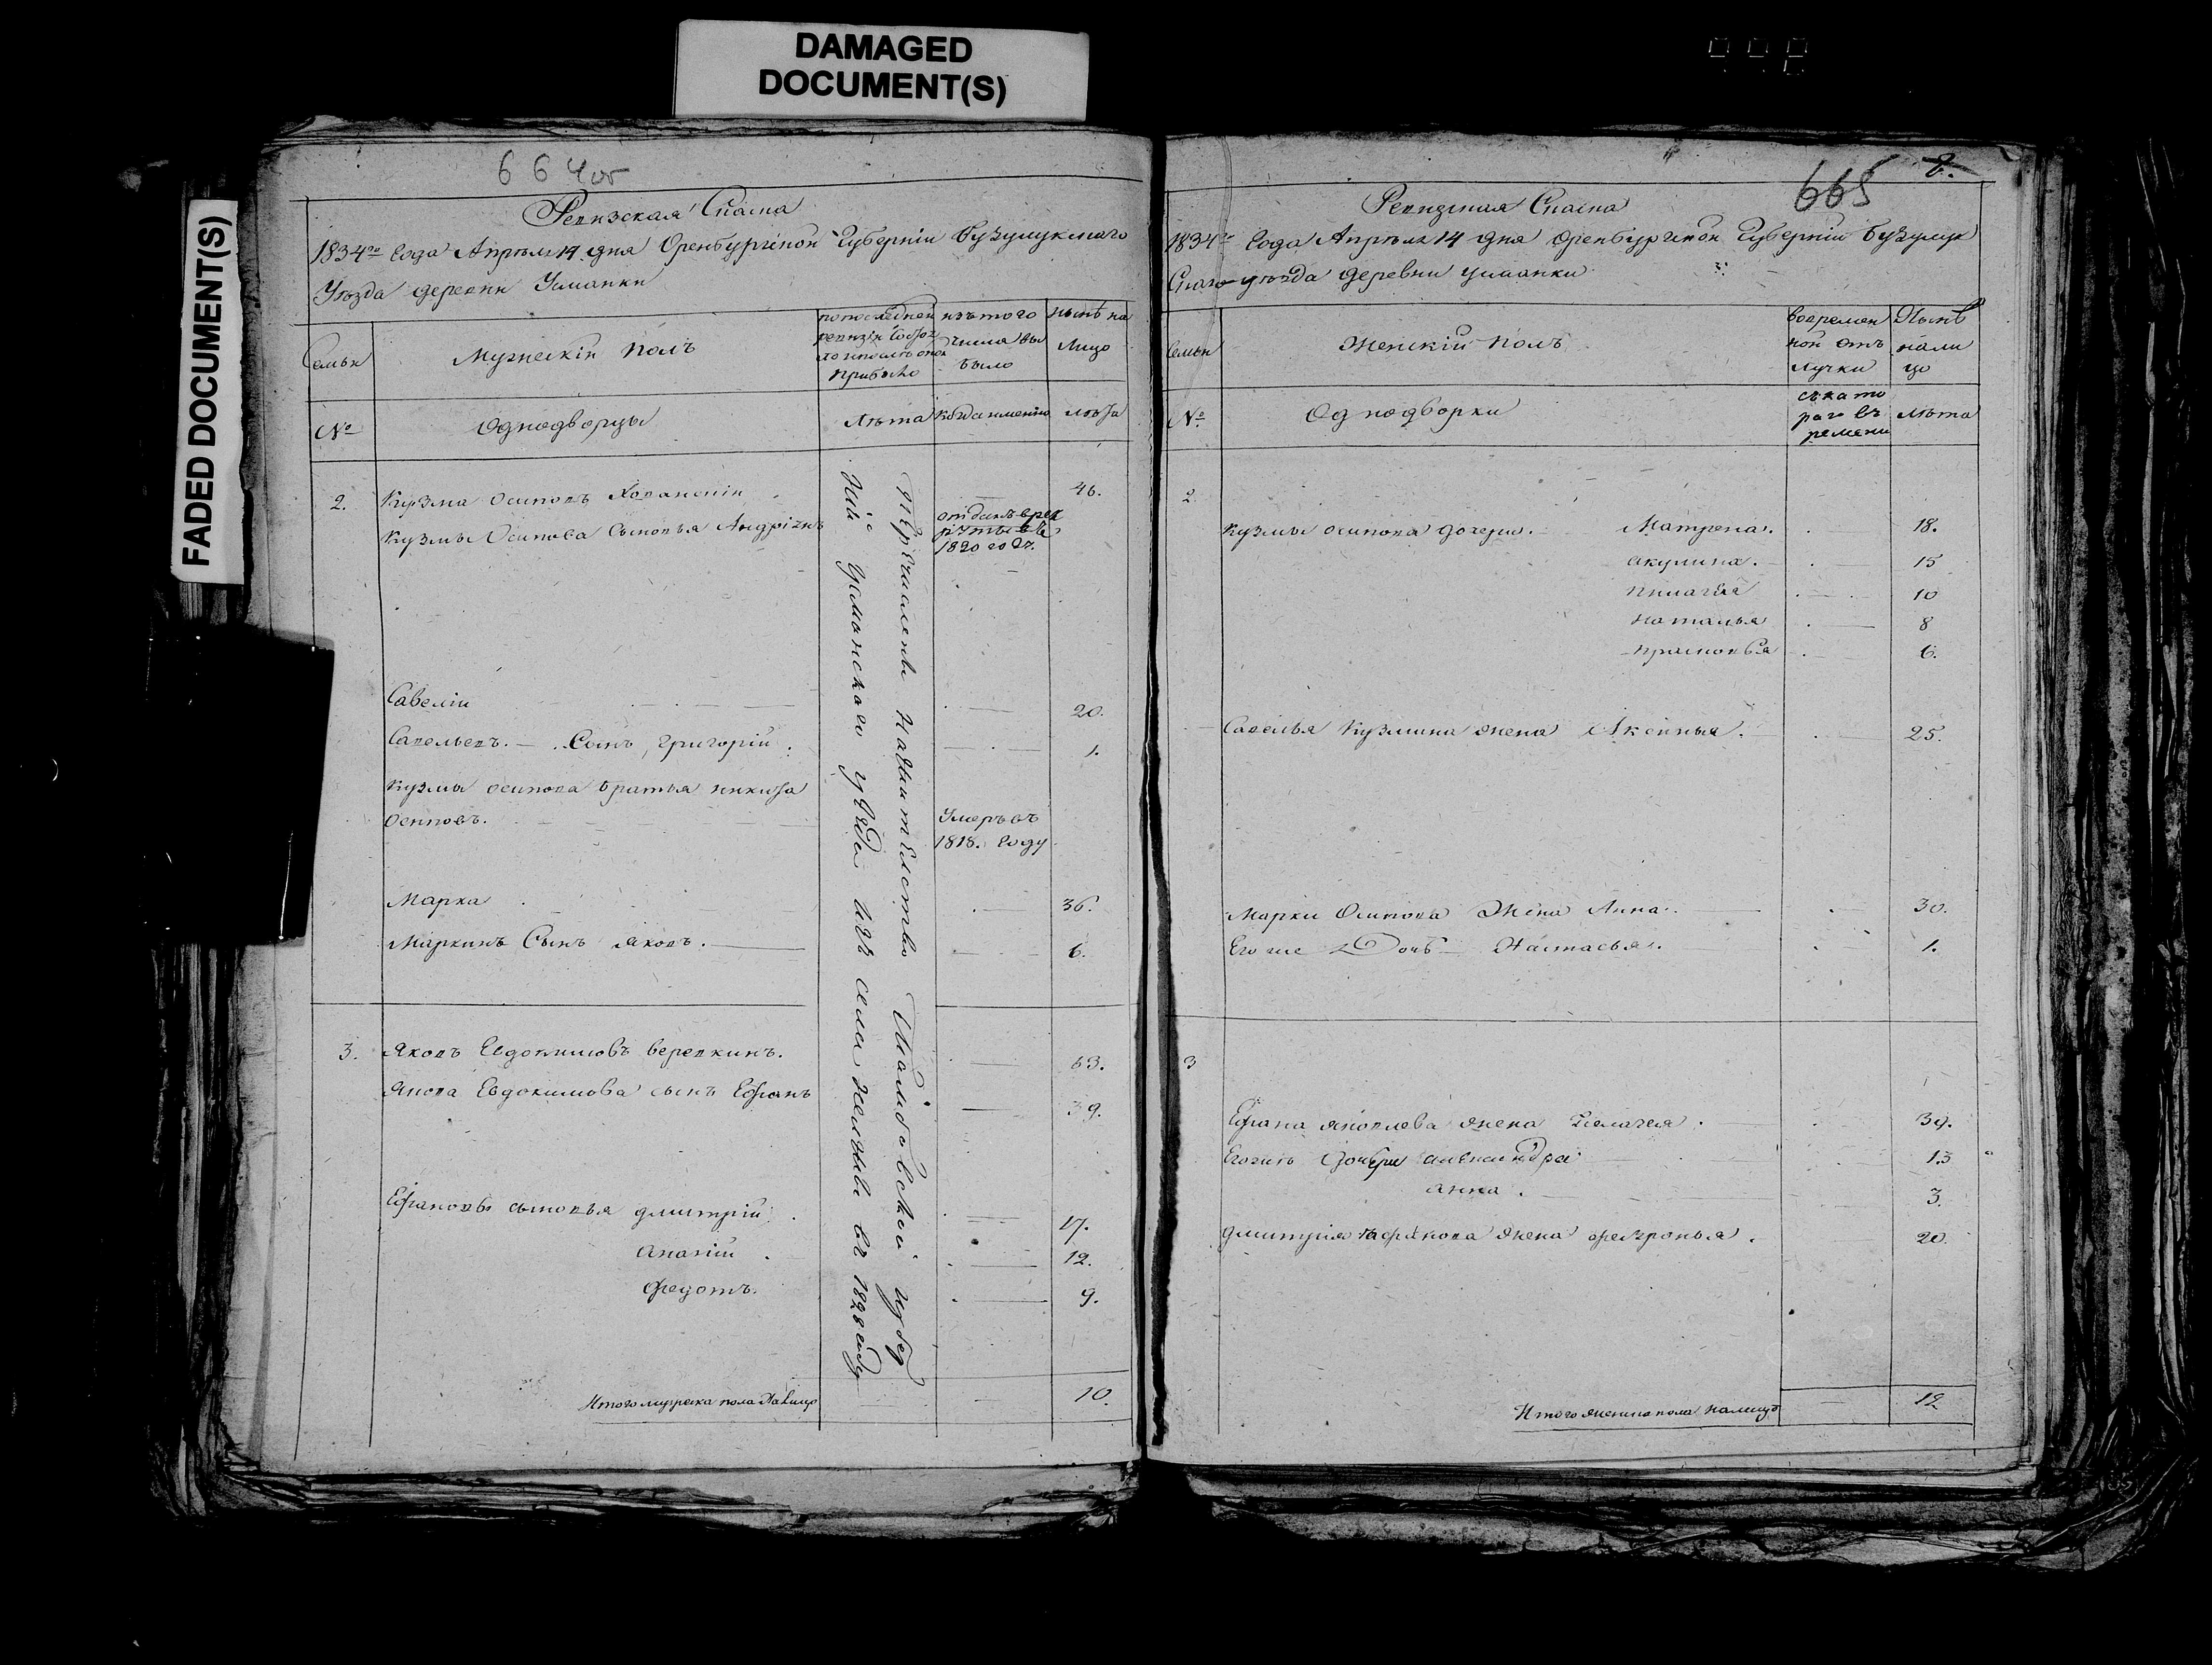 DAMAGED
DOCUMENT(S)
FADED DOCUMENT(S)
664об
Ревизская Сказка
1834го Года Апреля 14 дня Оренбургской Губернии Бузулукскаго
Уезда деревни Усманки
Семьи
Мужескій полъ
по последней
ревизіи состоя
ло и после оной
прибыло
изъ того
числа вы
было
ныне на
Лицо
№
Однодворцы
Лета
Когда именно
лета
2.
Кузма Осиповъ
46.
Кузмы Осипова Сыновья
отданъ в рек
руты въ
1820 году
Савелій
20.
Савельевъ Сынъ, Григорій.
1.
Кузмы осипова братья никита
осиповъ.
Умеръ въ
1818. году
Марка
36.
Маркинъ Сынъ яковъ.
6.
3.
Яковъ Евдокимовъ веревкинъ.
63.
Якова Евдокимова сынъ Ефранъ
39.
Ефрановы сыновья дмитрій
17.
Ананій
12.
Федотъ.
9.
Итого мужеска пола На Лицо
10.
Перечислены на жительство Тамбовской губер
ніи усманскаго уезда изъ села въ 1828 году
665
2.
Ревизская Сказка
1834го Года Апреля 14 дня Оренбургской Губерніи бузулук
Скаго уезда деревни усманки
Семьи
Женскій полъ
во времен
ной отъ
лучки
Ныне
нали
цо
№
Однодворки
съ като
раго въ
ремени
лета
2
Кузмы осипова дочери. Матрена.
18.
акулина.
15
10
наталья
8
прасковья
6.
Савелья Кузмина жена Аксинья.
25.
Марки Осипова Жена Анна.
30.
Его же Дочь Настасья.
1.
3
Ефрана яковлева жена Пелагея.
39.
Его жъ дочери александра
13
анна.
3.
дмитрія жена
20.
Итого женска пола налицо
12